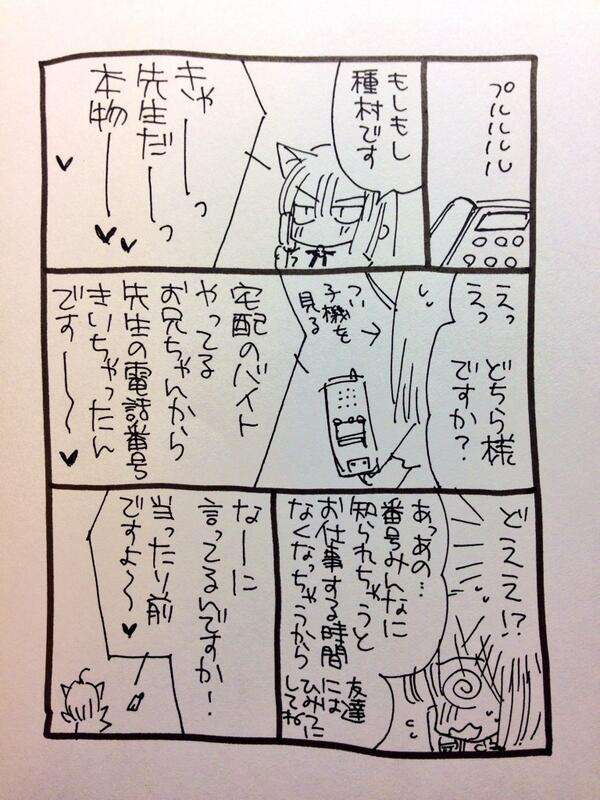 プルルルル
もしもし
種村です
きゃーーっ
先生だーーっ
本物ーーー
えっ
えっ
どちら様
ですか？
つい
子機を
見る
宅配のバイト
やってる
お兄ちゃんから
先生の電話番号
きいちゃったん
です〜〜
どええ!?
あっあの…
番号みんなに
知られちゃうと
お仕事する時間
なくなっちゃうから
友達
には
ひみつに
してね
なーに
言ってるんですか！
当ったり前
ですよ〜〜